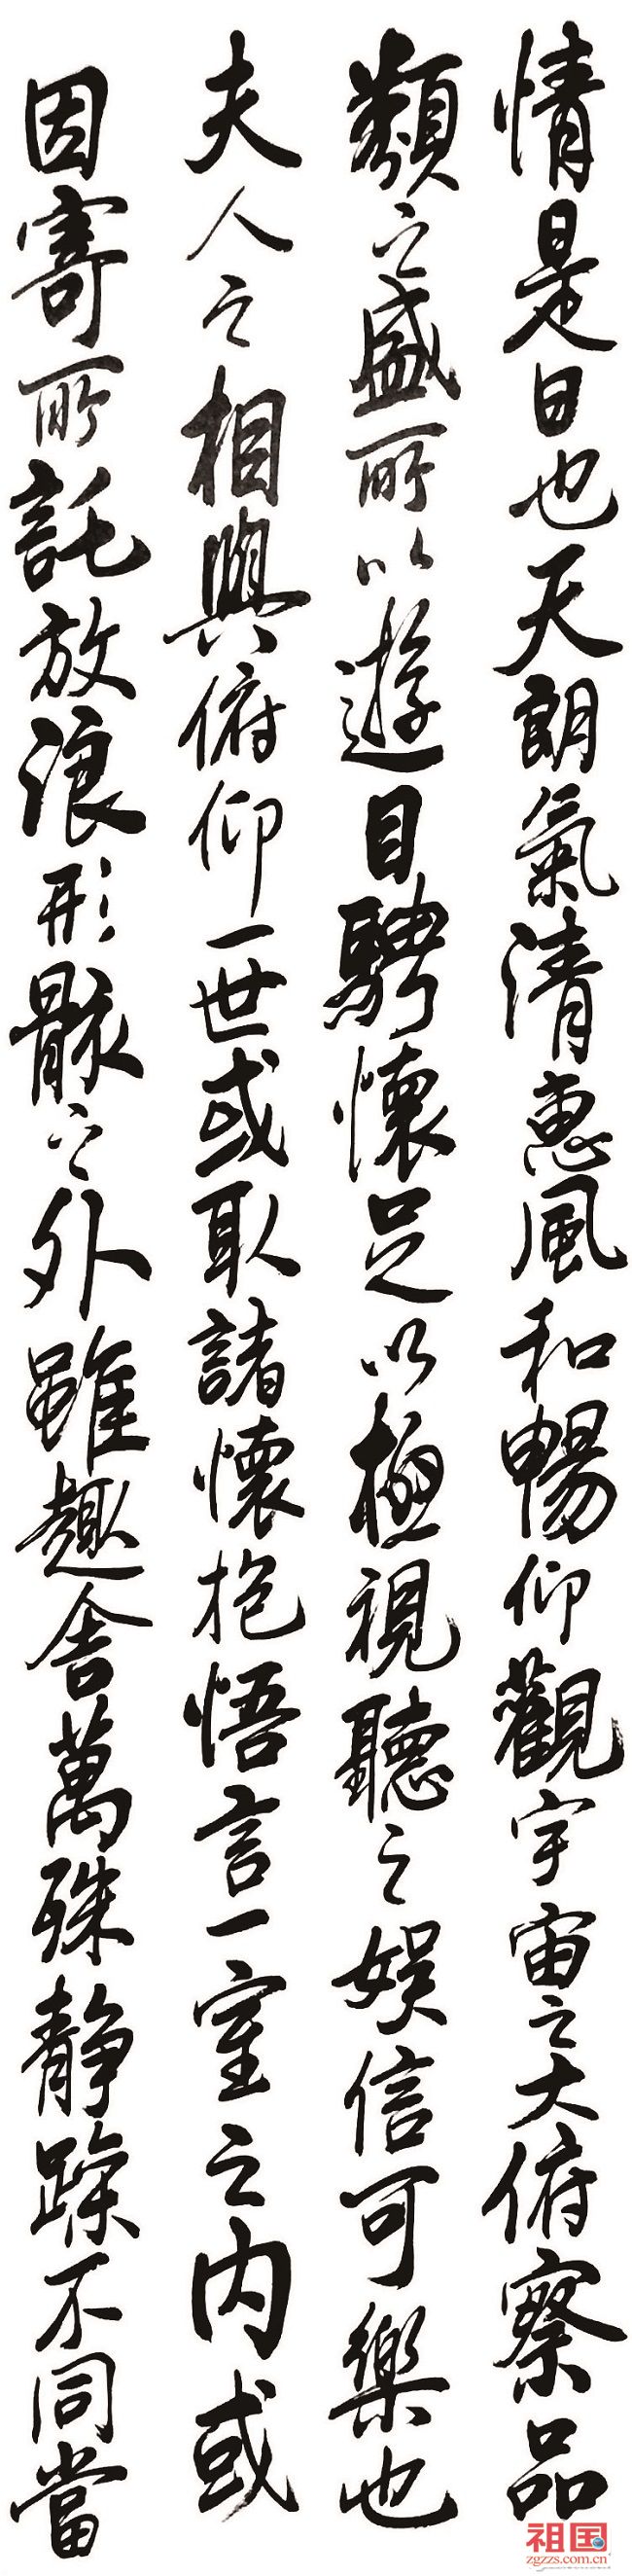 情是日也天朗氣清惠風和暢仰觀宇宙之大俯察品
類之盛所以遊目騁懷足以極視聽之娛信可樂也
夫人之相與俯仰一世或取諸懷抱悟言一室之内或
因寄所託放浪形骸之外雖趣舍萬殊靜躁不同當
祖国
zgzzs.com.cn